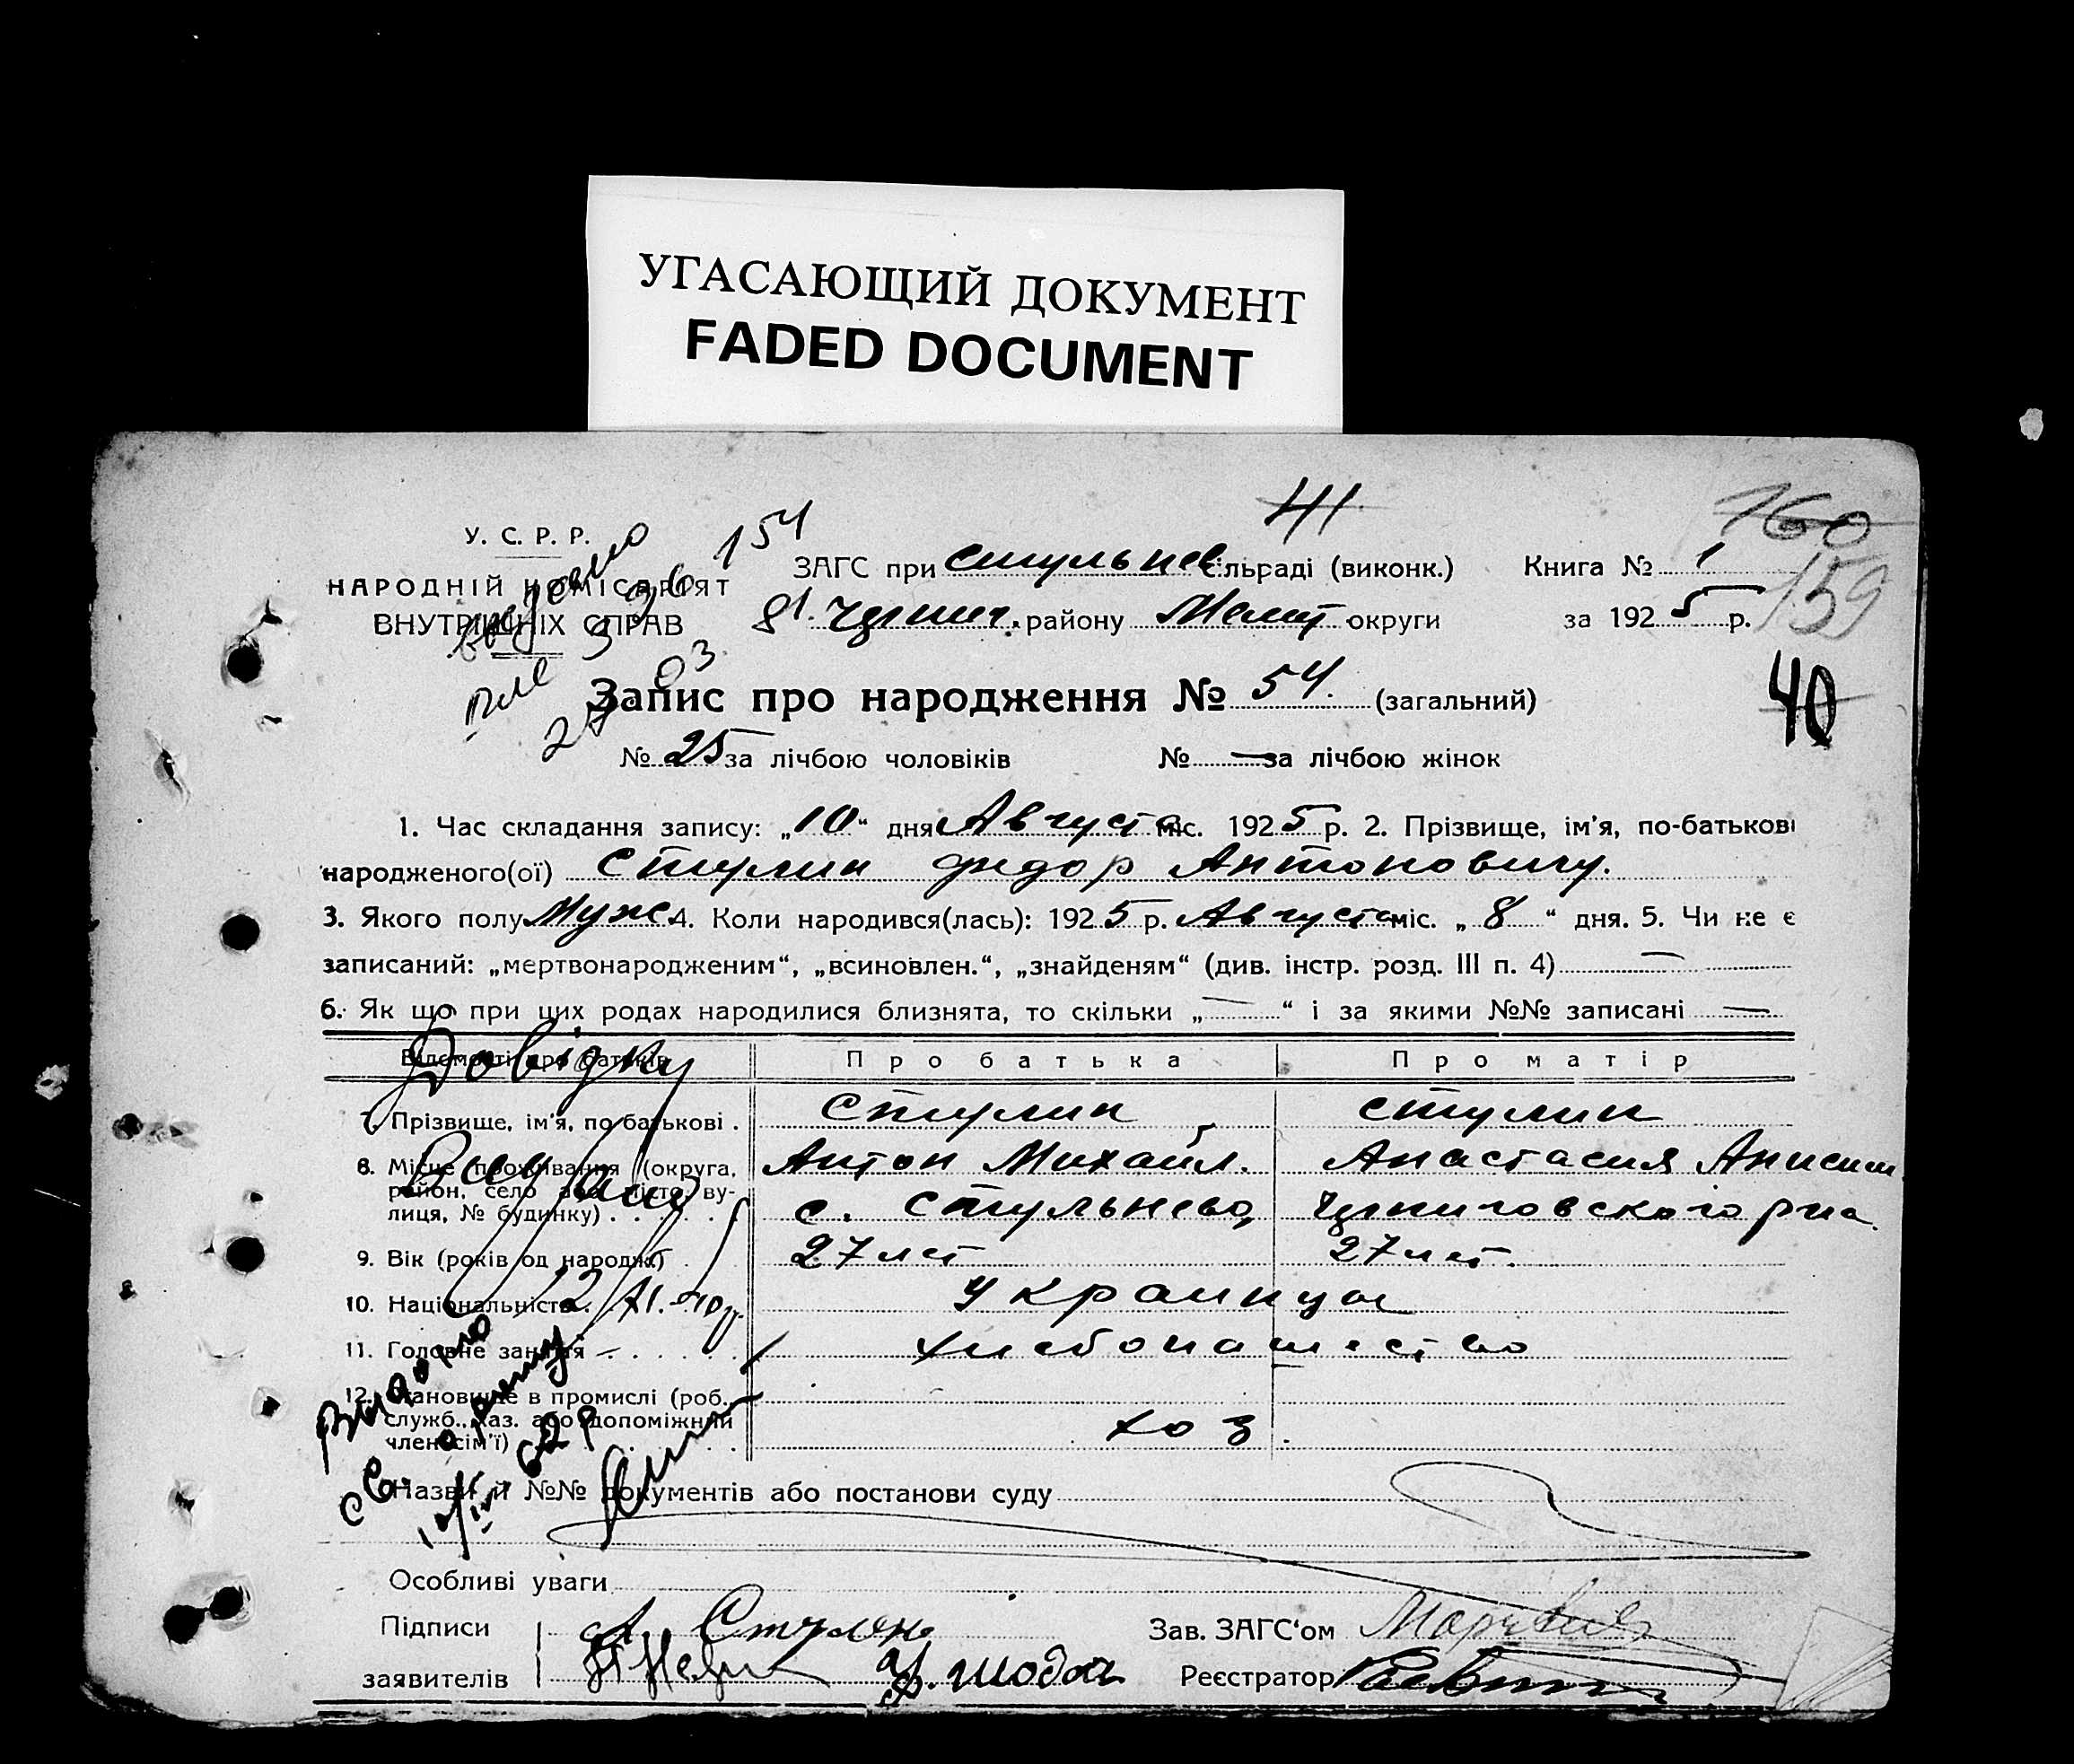 УГАСАЮЩИЙ ДОКУМЕНТ
FADED DOCUMENT
41
160
159
40
154
У. С. Р. Р.
НАРОДНІЙ КОМІСАРІЯТ
ВНУТРІШНІХ СПРАВ
ЗАГС при Стульнев. сільраді (виконк.) Книга № 1
району Мелит округи за 1925 р.
Запис про народження № 54. (загальний)
№ 25 за лічбою чоловіків № — за лічбою жінок
1. Час складання запису: „10“ дня Августа міс. 1925 р. 2. Прізвище, ім'я, по-батькові
народженого(ої) Стулин Фидор Антоновичу.
3. Якого полу Муж. 4. Коли народився(лась): 1925 р. Августа міс. „8“ дня. 5. Чи не є
записаний: „мертвонародженим“, „всиновлен.“, „знайденям“ (див. інстр. розд. III п. 4) —
6. Як що при цих родах народилися близнята, то скільки „—“ і за якими №№ записані —
Відомості про батьків Про батька Про матір
Довідку
7. Прізвище, ім'я, по батькові . Стулин Стулин
8. Місце проживання (округа, Антон Михайл. Анастасия Анисим
район, село або місто, ву-
лиця, № будинку) . . . . с. Стульнево,
9. Вік (років од народж.) . 27 лет 27 лет.
10. Національність . Украинцы
11. Головне заняття . . . . . Хлебопашество
12. Становище в промислі (роб.,
служб., хаз. або допоміжний
член сім'ї) хоз.
Видано
св.
Назви й №№ документів або постанови суду
Особливі уваги
Підписи А Стулин Зав. ЗАГС'ом
заявителів Реєстратор